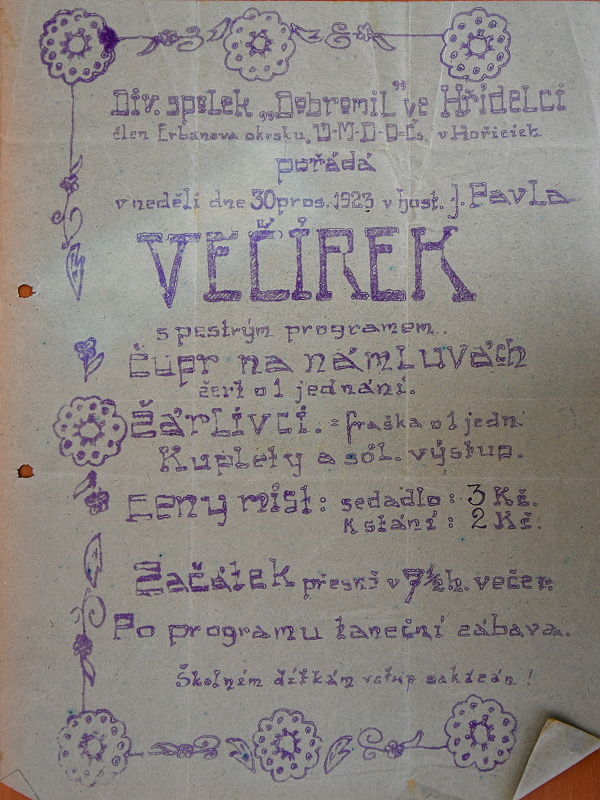 Div. spolek „Dobromil” ve Hřídelci
člen Erbanova okrsku, Ú-M-D-O-Čs. v Hořicích
pořádá
v neděli dne 30 pros. 1923 v host. J. Pavla
VEČÍREK
s pestrým programem.
Čupr na námluvách
žert o 1 jednání.
Žárlivci. = fraška o 1 jedn.
Kuplety a sól. výstup.
Ceny míst: sedadlo: 3 Kč.
K stání: 2 Kč.
Začátek přesně v 7½ h. večer.
Po programu taneční zábava.
Školním dítkám vstup zakázán!